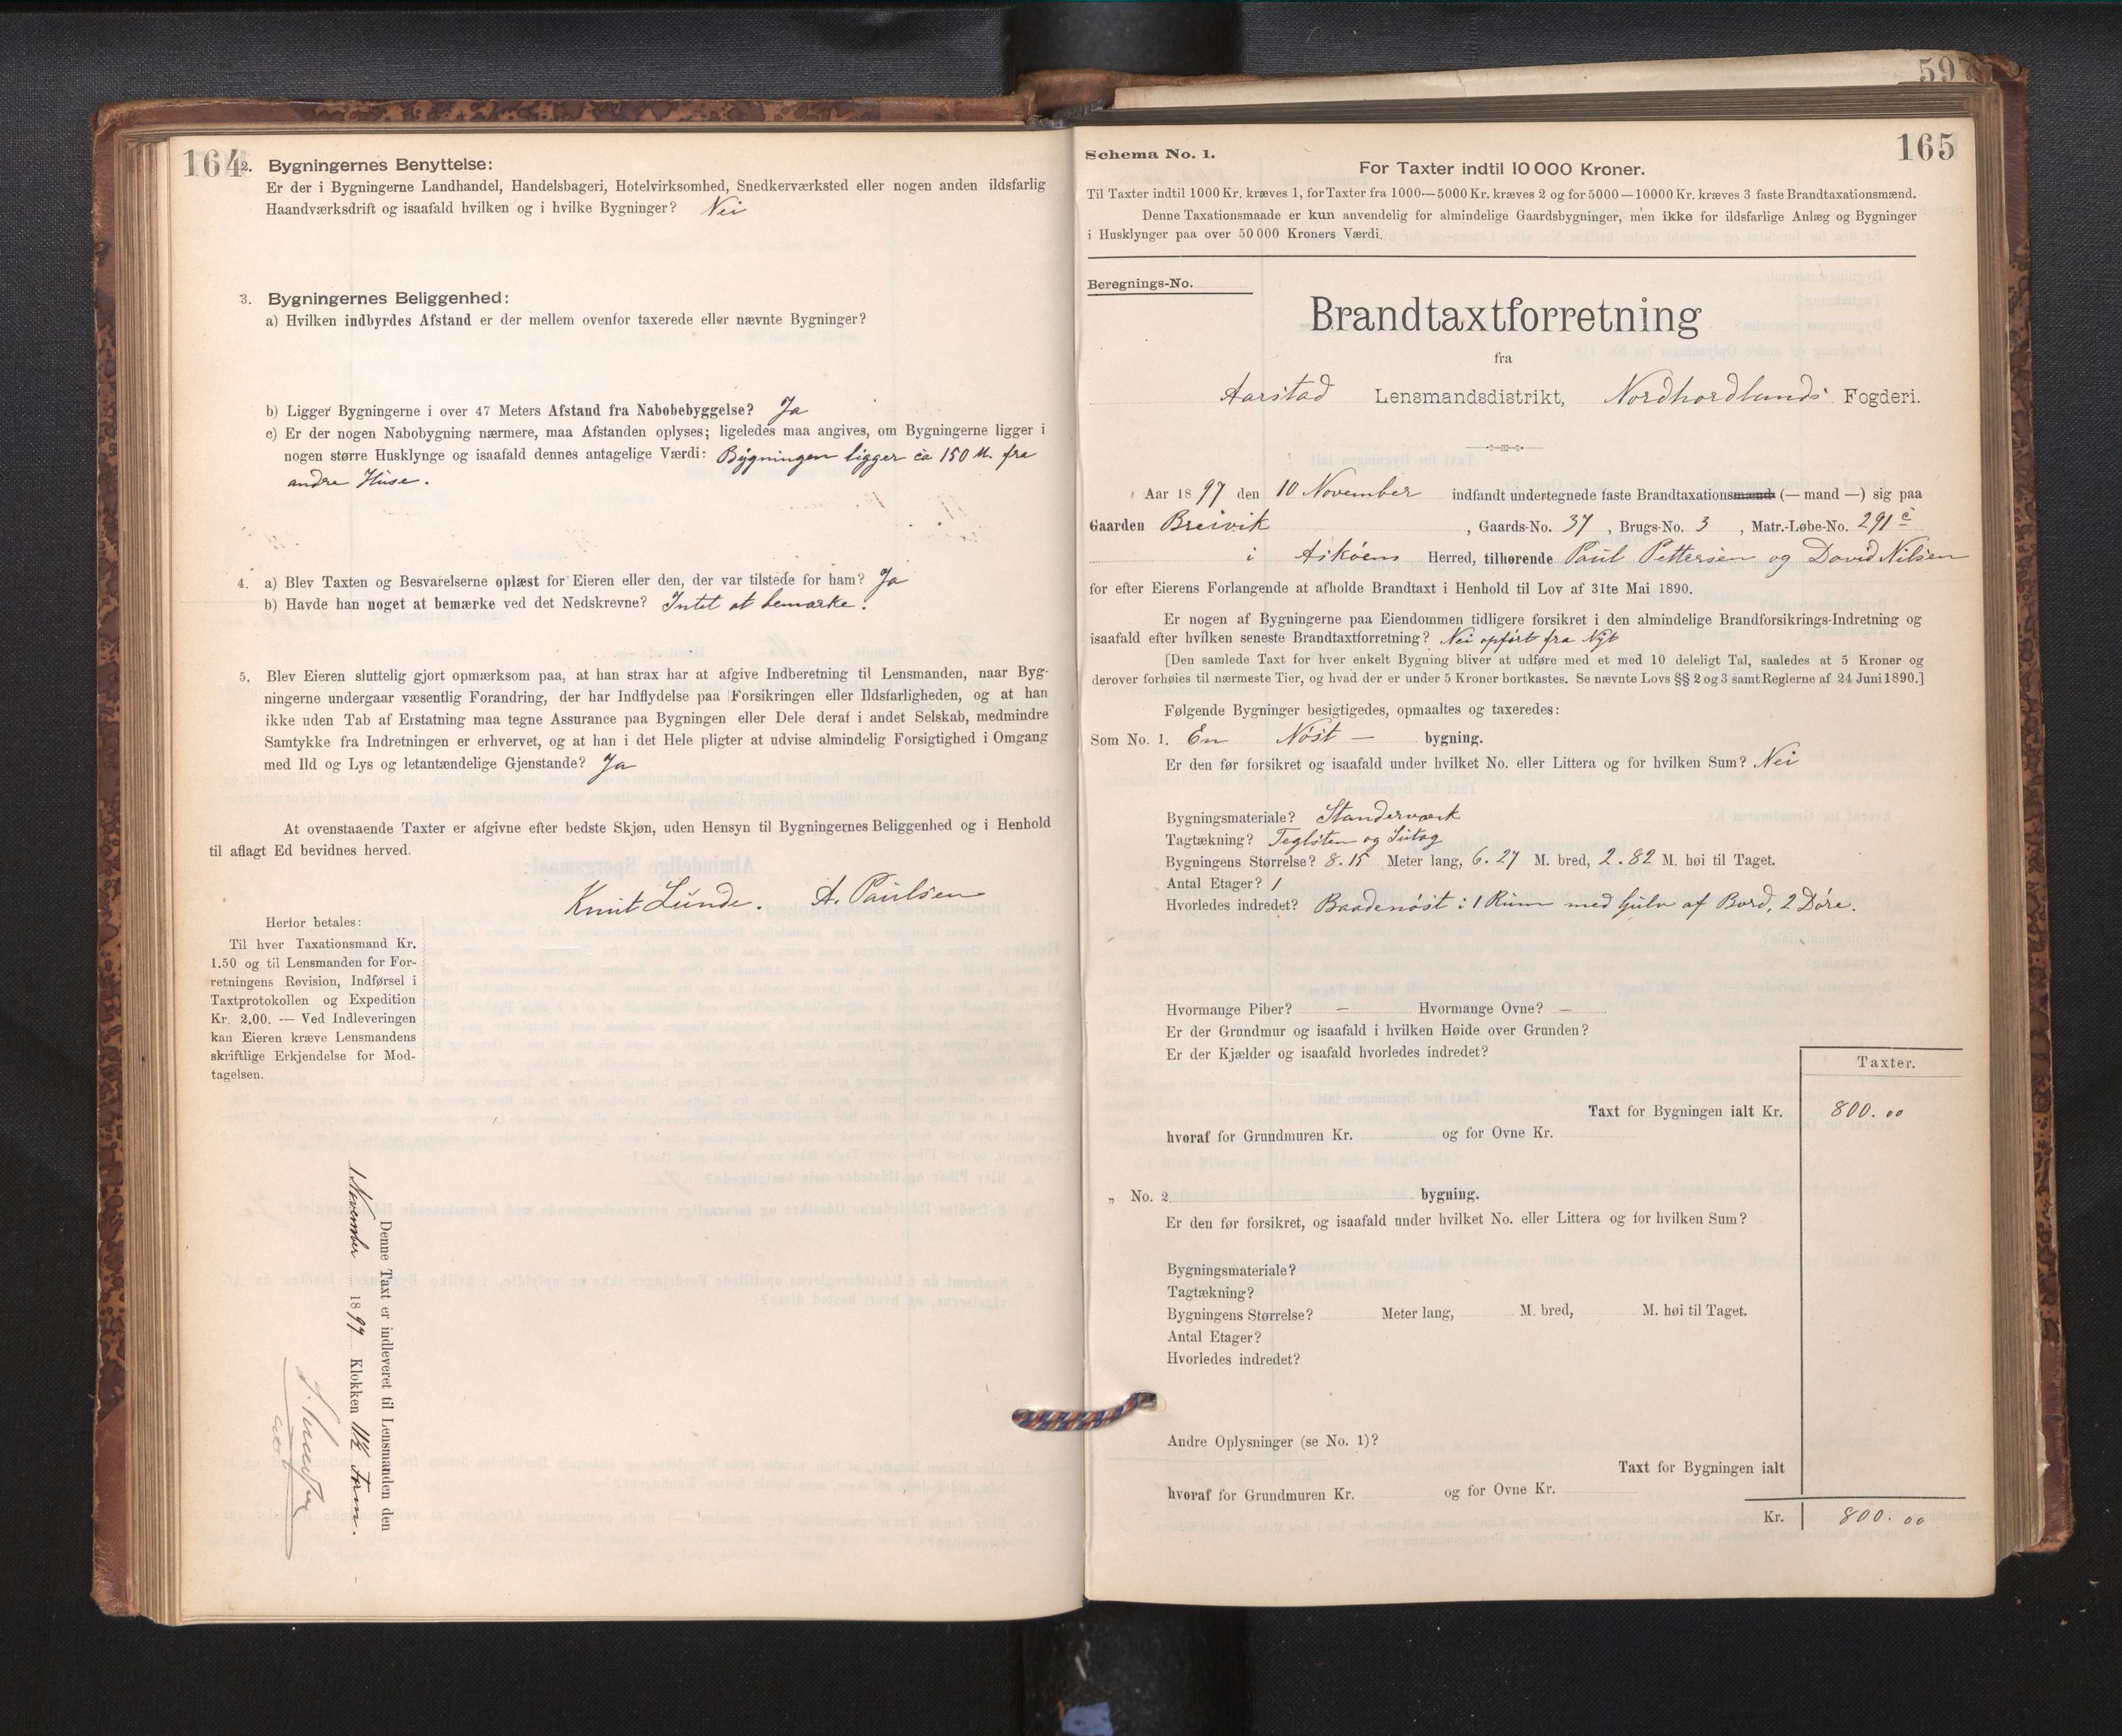 164
2. Bygningernes Benyttelse:
Er der i Bygningerne Landhandel, Handelsbageri, Hotelvirksomhed, Snedkerværksted eller nogen anden ildsfarlig
Haandværksdrift og isaafald hvilken og i hvilke Bygninger? Nei
3. Bygningernes Beliggenhed:
a) Hvilken indbyrdes Afstand er der mellem ovenfor taxerede eller nævnte Bygninger?
b) Ligger Bygningerne i over 47 Meters Afstand fra Nabobebyggelse? Ja
c) Er der nogen Nabobygning nærmere, maa Afstanden oplyses; ligeledes maa angives, om Bygningerne ligger i
nogen større Husklynge og isaafald dennes antagelige Værdi: Bygningen ligger ca 150 M. fra
andre Huse.
4. a) Blev Taxten og Besvarelserne oplæst for Eieren eller den, der var tilstede for ham? Ja
b) Havde han noget at bemærke ved det Nedskrevne? Intet at bemærke.
5. Blev Eieren sluttelig gjort opmærksom paa, at han strax har at afgive Indberetning til Lensmanden, naar Byg-
ningerne undergaar væsentlig Forandring, der har Indflydelse paa Forsikringen eller Ildsfarligheden, og at han
ikke uden Tab af Erstatning maa tegne Assurance paa Bygningen eller Dele deraf i andet Selskab, medmindre
Samtykke fra Indretningen er erhvervet, og at han i det Hele pligter at udvise almindelig Forsigtighed i Omgang
med Ild og Lys og letantændelige Gjenstande? Ja
At ovenstaaende Taxter er afgivne efter bedste Skjøn, uden Hensyn til Bygningernes Beliggenhed og i Henhold
til aflagt Ed bevidnes herved.
Knut Lunde. A. Paulsen
Herfor betales:
Til hver Taxationsmand Kr.
1.50 og til Lensmanden for For-
retningens Revision, Indførsel i
Taxtprotokollen og Expedition
Kr. 2.00. — Ved Indleveringen
kan Eieren kræve Lensmandens
skriftlige Erkjendelse for Mod-
tagelsen.
Denne Taxt er indleveret til Lensmanden den
1 November 1897 Klokken 11½ Form.
597
165
Schema No. 1.
For Taxter indtil 10 000 Kroner.
Til Taxter indtil 1000 Kr. kræves 1, for Taxter fra 1000—5000 Kr. kræves 2 og for 5000—10000 Kr. kræves 3 faste Brandtaxationsmænd.
Denne Taxationsmaade er kun anvendelig for almindelige Gaardsbygninger, men ikke for ildsfarlige Anlæg og Bygninger
i Husklynger paa over 50 000 Kroners Værdi.
Beregnings-No.
Brandtaxtforretning
fra
Aarstad Lensmandsdistrikt, Nordhordlands Fogderi.
Aar 1897 den 10 November indfandt undertegnede faste Brandtaxationsmænd (— mand —) sig paa
Gaarden Breivik, Gaards-No. 37, Brugs-No. 3, Matr.-Løbe-No. 291 c
i Askøens Herred, tilhørende Paul Pettersen og David Nilsen
for efter Eierens Forlangende at afholde Brandtaxt i Henhold til Lov af 31te Mai 1890.
Er nogen af Bygningerne paa Eiendommen tidligere forsikret i den almindelige Brandforsikrings-Indretning og
isaafald efter hvilken seneste Brandtaxtforretning? Nei opført fra Nyt
[Den samlede Taxt for hver enkelt Bygning bliver at udføre med et med 10 deleligt Tal, saaledes at 5 Kroner og
derover forhøies til nærmeste Tier, og hvad der er under 5 Kroner bortkastes. Se nævnte Lovs §§ 2 og 3 samt Reglerne af 24 Juni 1890.]
Følgende Bygninger besigtigedes, opmaaltes og taxeredes:
Som No. 1. En Nøst — bygning.
Er den før forsikret og isaafald under hvilket No. eller Littera og for hvilken Sum? Nei
Bygningsmateriale? Standerværk
Tagtækning? Teglsten og Sutag
Bygningens Størrelse? 8.15 Meter lang, 6.27 M. bred, 2.82 M. høi til Taget.
Antal Etager? 1
Hvorledes indredet? Baadenøst i 1 Rum med Gulv af Bord, 2 Døre.
Hvormange Piber? — Hvormange Ovne? —
Er der Grundmur og isaafald i hvilken Høide over Grunden?
Er der Kjælder og isaafald hvorledes indredet?
Taxter.
Taxt for Bygningen ialt Kr. 800.00
hvoraf for Grundmuren Kr. og for Ovne Kr.
„ No. 2 bygning.
Er den før forsikret, og isaafald under hvilket No. eller Littera og for hvilken Sum?
Bygningsmateriale?
Tagtækning?
Bygningens Størrelse? Meter lang, M. bred, M. høi til Taget.
Antal Etager?
Hvorledes indredet?
Andre Oplysninger (se No. 1)?
Taxt for Bygningen ialt
hvoraf for Grundmuren Kr. og for Ovne Kr.
Kr. 800.00